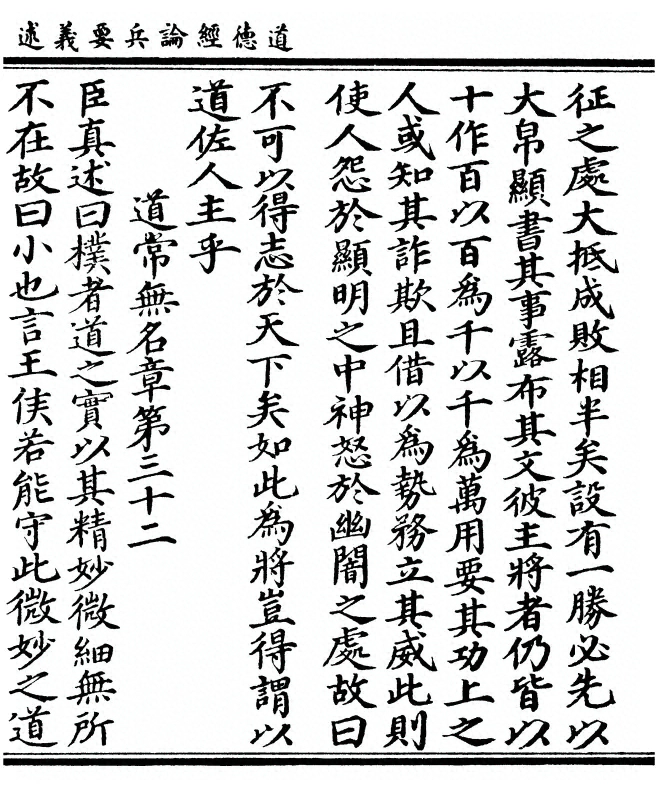 道德經論兵要義述
征之處大抵成敗相半矣設有一勝必先以
大帛顯書其事露布其文彼主將者仍皆以
十作百以百為千以千為萬用要其功上之
人或知其詐欺且借以為勢務立其威此則
使人怨於顯明之中神怒於幽闇之處故曰
不可以得志於天下矣如此為將豈得謂以
道佐人主乎
道常無名章第三十二
臣真述曰樸者道之實以其精妙微細無所
不在故曰小也言王侯若能守此微妙之道